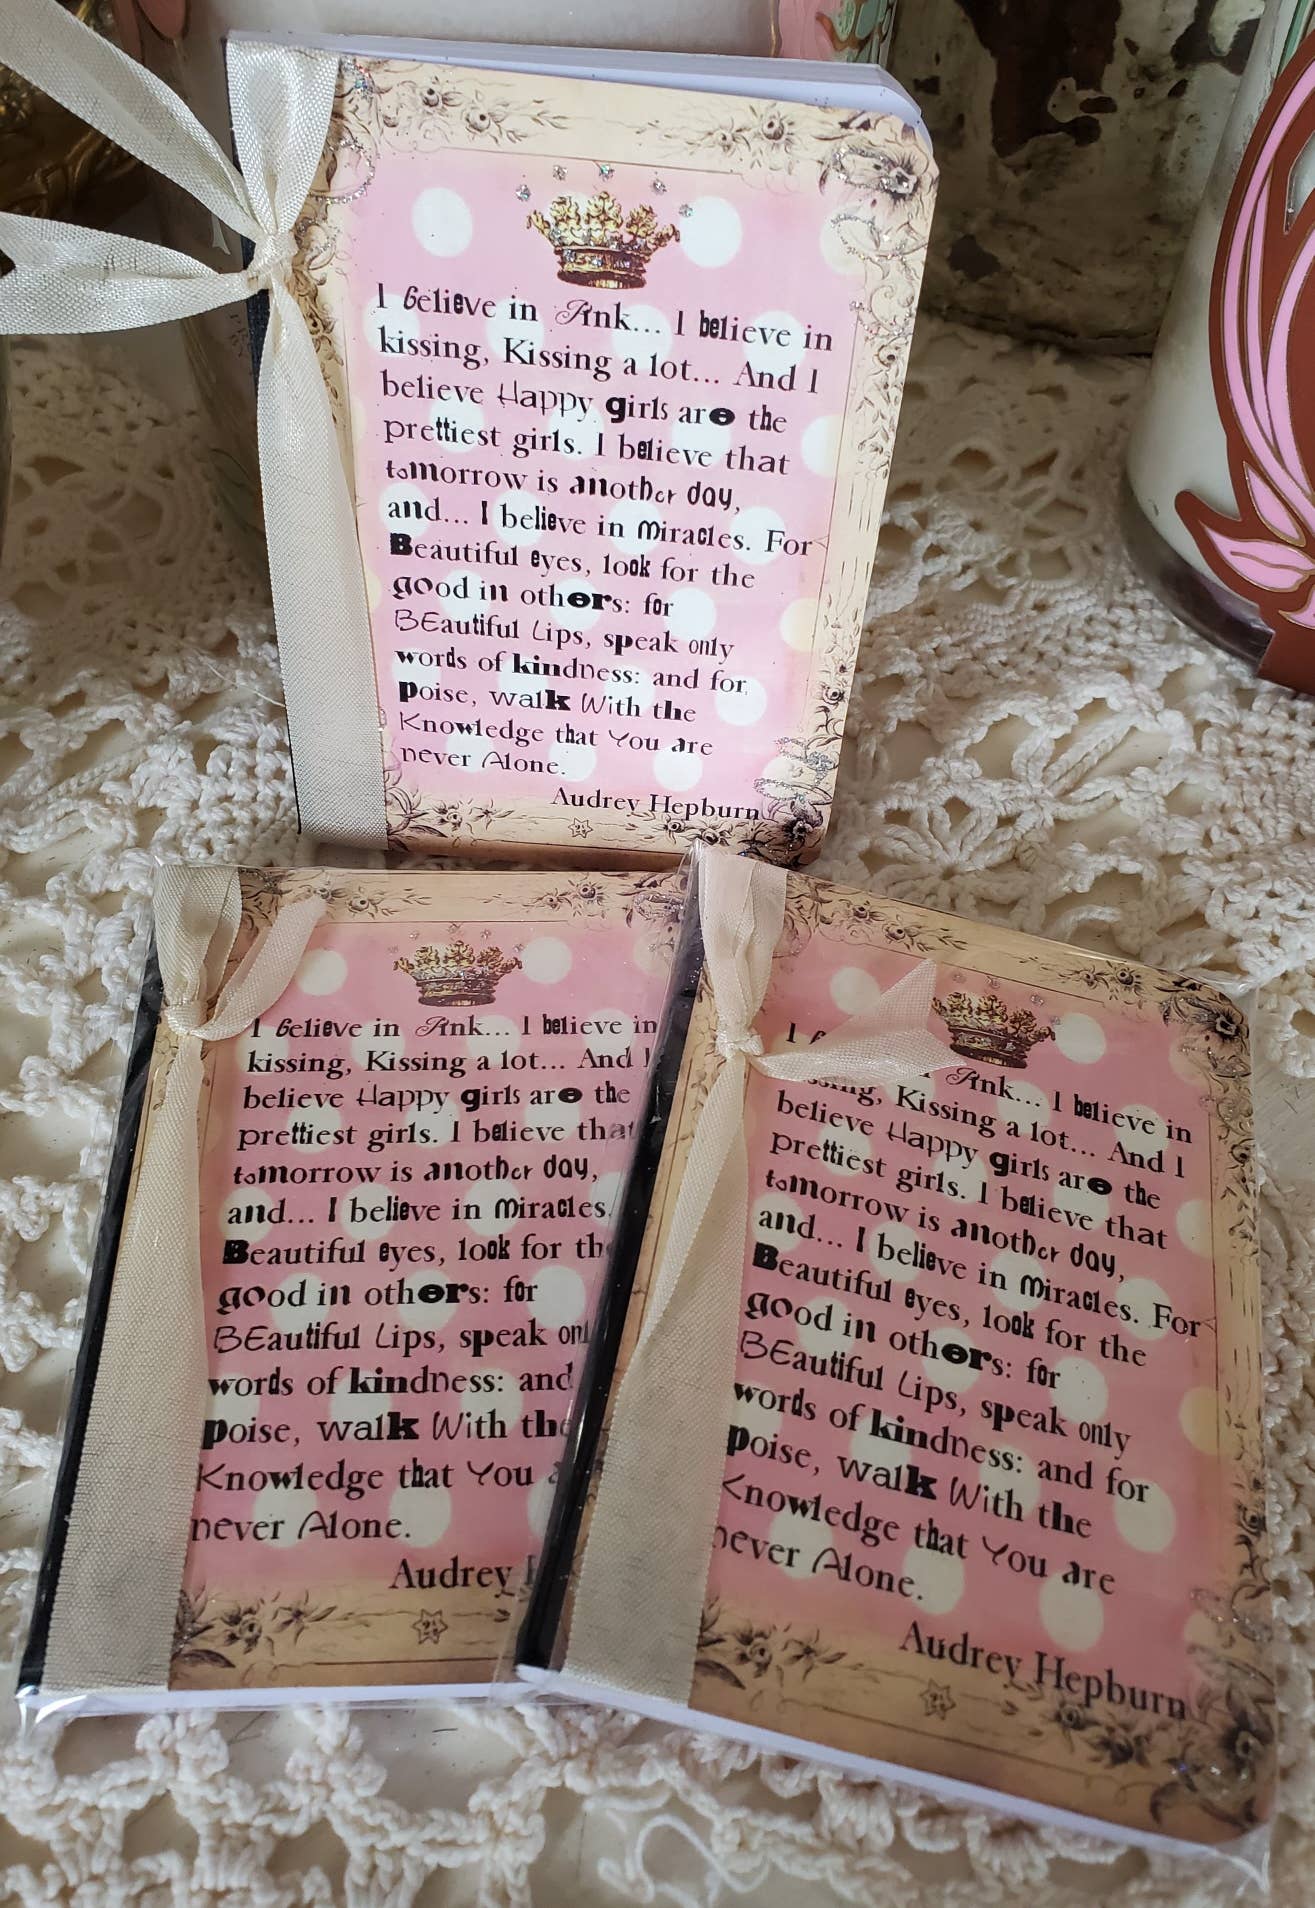 I Believe in Pink... I believe in
kissing, Kissing a lot... And I
believe Happy girls are the
prettiest girls. I believe that
tomorrow is another day,
and... I believe in Miracles. For
Beautiful eyes, look for the
good in others: for
BEautiful Lips, speak only
words of kindness: and for
poise, walk With the
Knowledge that You are
never Alone.
Audrey Hepburn
I Believe in Pink... I believe in
kissing, Kissing a lot... And I
believe Happy girls are the
prettiest girls. I believe that
tomorrow is another day,
and... I believe in Miracles.
Beautiful eyes, look for th
good in others: for
BEautiful Lips, speak onl
words of kindness: and
poise, walk With the
Knowledge that You
never Alone.
Audrey
I Pink... I believe in
Kissing a lot... And I
believe Happy girls are the
prettiest girls. I believe that
tomorrow is another day,
and... I believe in Miracles. For
Beautiful eyes, look for the
good in others: for
BEautiful Lips, speak only
words of kindness: and for
poise, walk With the
Knowledge that You are
never Alone.
Audrey Hepburn